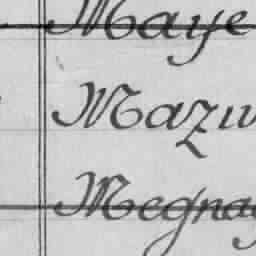 Maye
Mazu
Megnag